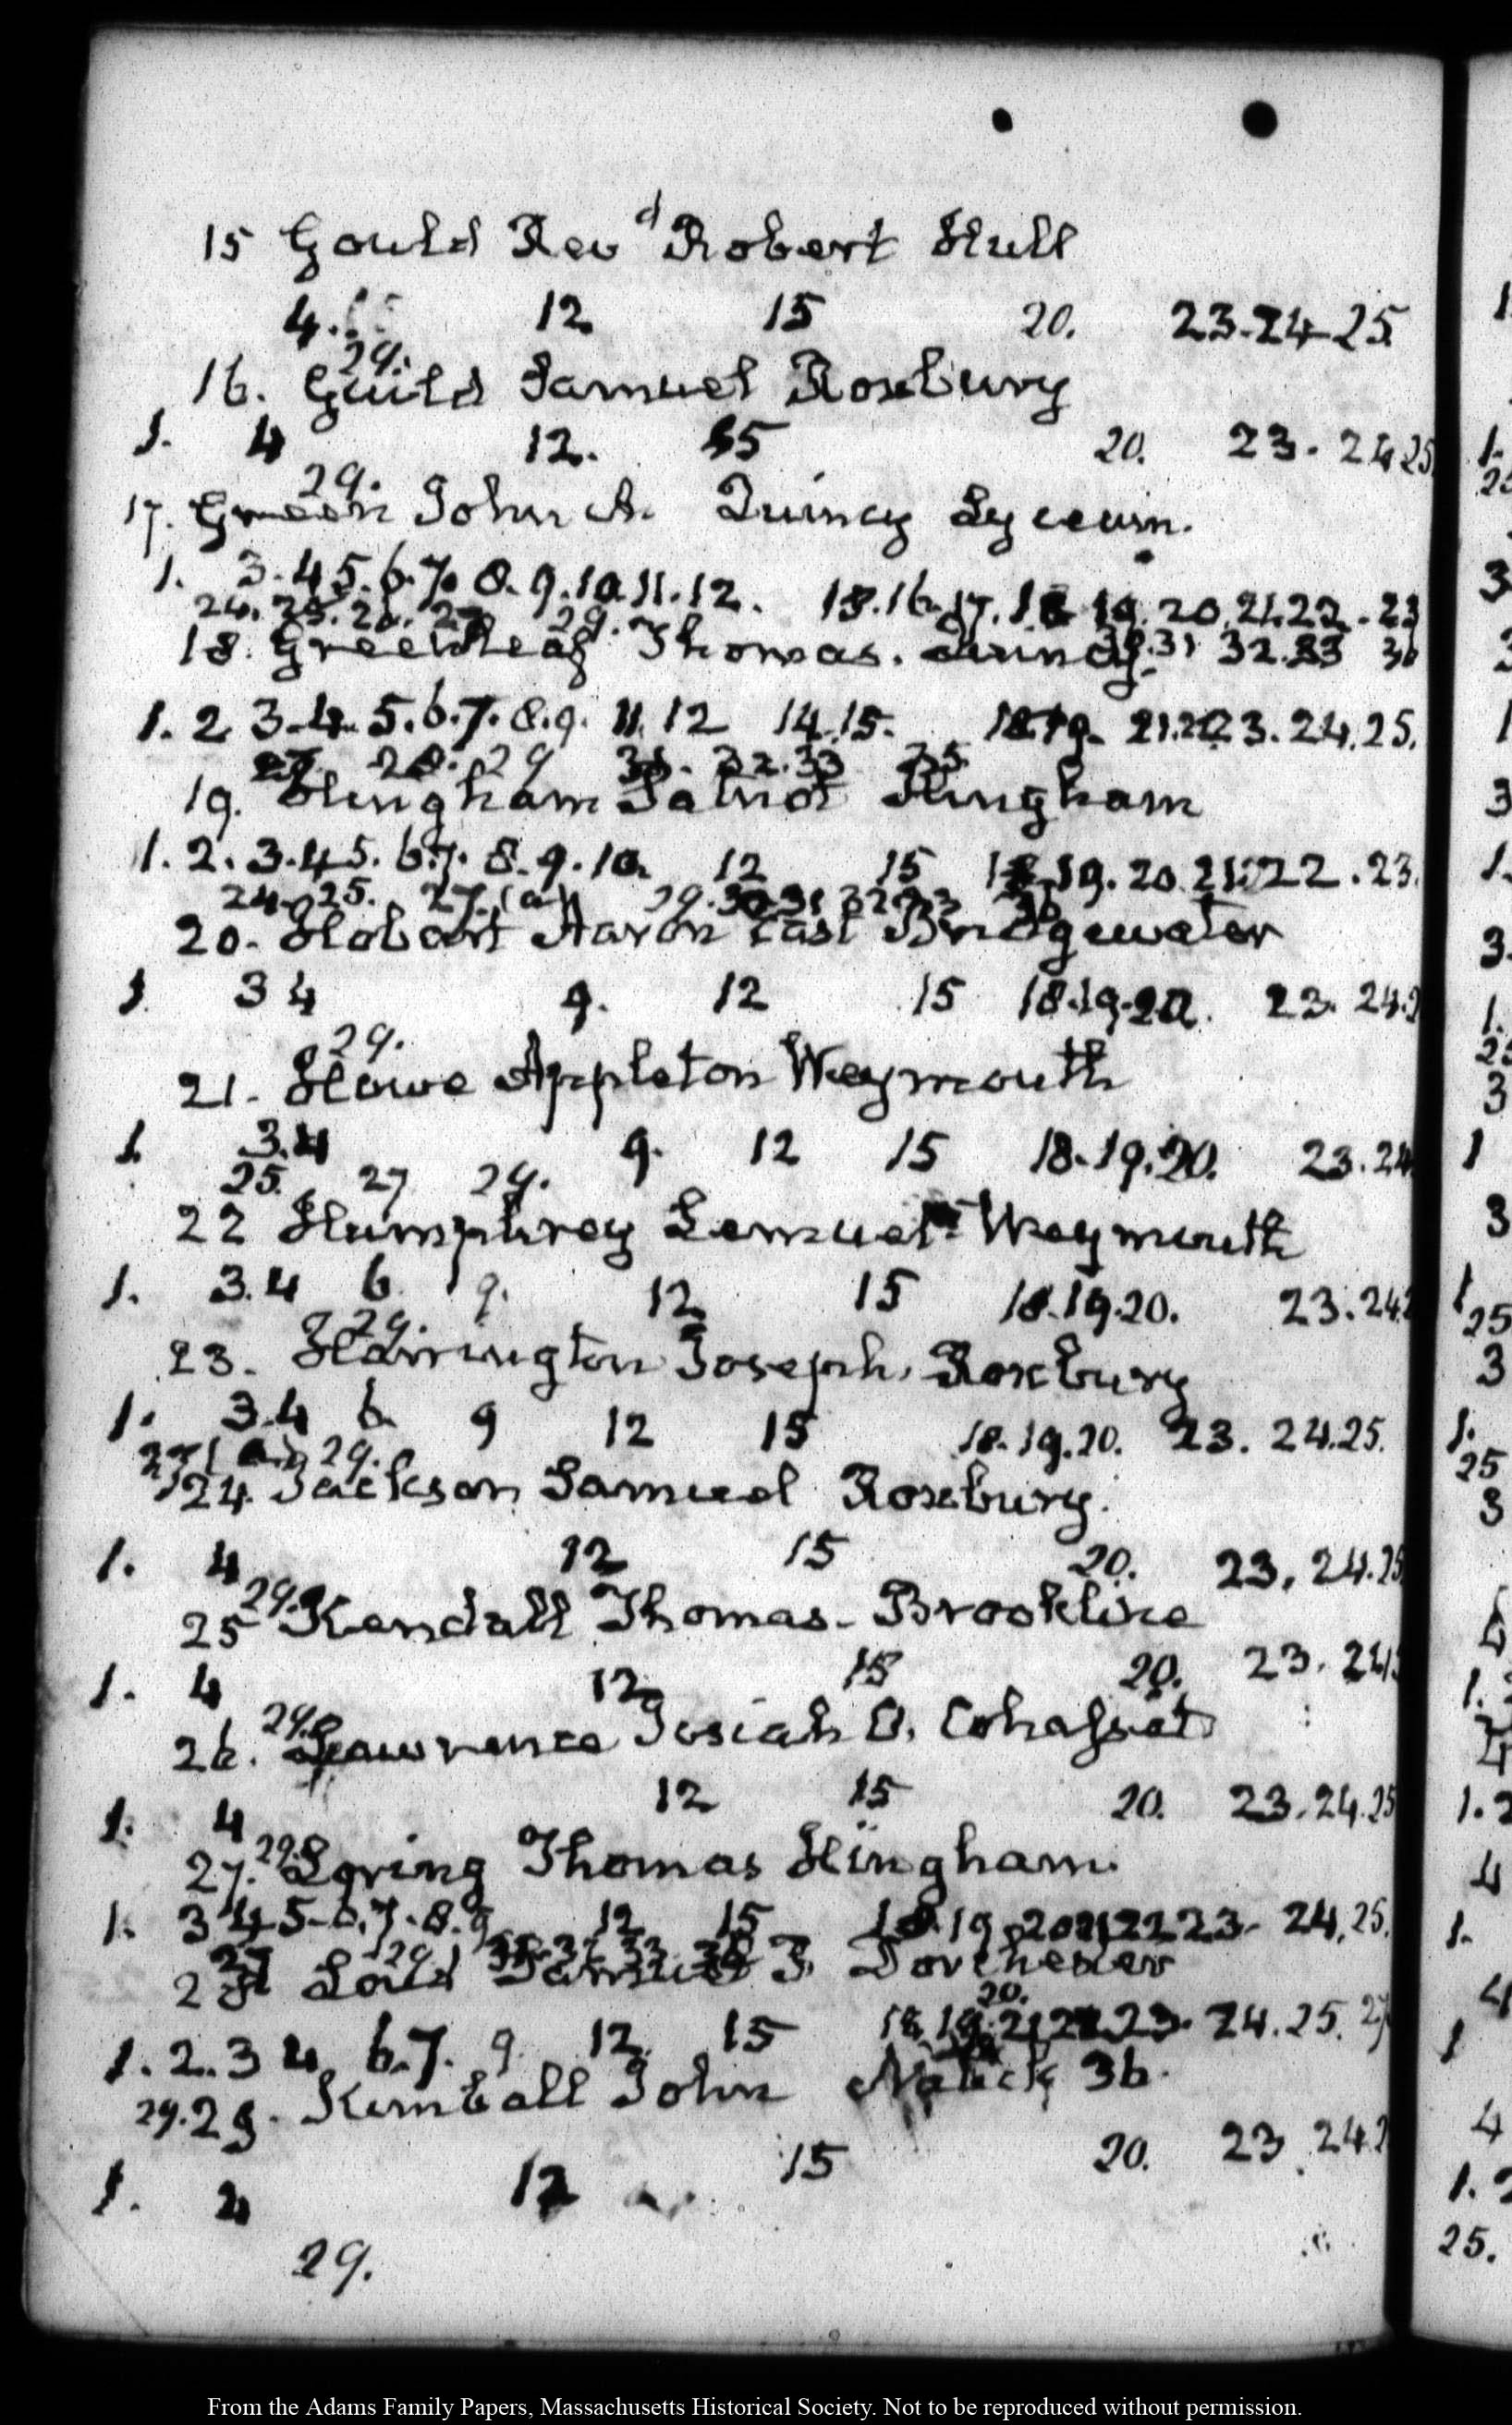 15 Gould Rev^d Robert Hull
4. 12 15 20. 23.24 25
29.
16. Guild Samuel Roxbury
1. 4 12. 15 20. 23. 24 25
29.
17. Green John A. Quincy Lyceum.
1. 3.4 5.6.7. 8.9.10.11.12. 18.16.17.18 19. 20.21.22.23
24.25.26.27 29.
18. Greenleaf Thomas. Quincy. 31 32.33 36
1. 2 3.4. 5.6.7.8.9. 11.12 14.15. 18.19. 21.22 23.24.25.
27 28. 29 31. 32.33 35
19. Hingham Patriot Hingham
1. 2. 3.4 5. 6.7. 8.9.10. 12 15 18.19. 20.21.22.23.
24.25. 27. (a) 29.30.31 32 33 36
20. Hobart Aaron East Bridgewater
1 3 4 9. 12 15 18.19.20. 23. 24.2
29.
21. Howe Appleton Weymouth
1 3.4 9. 12 15 18.19.20. 23.24
25. 27 29.
22 Humphrey Lemuel Weymouth
1. 3.4 6 9. 12 15 18.19.20. 23.24
29.
23. Harrington Joseph. Roxbury
1. 3.4 6. 9 12 15 18.19.20. 23. 24.25.
27 (a) 29.
24. Jackson Samuel Roxbury.
1. 4 12 15 20. 23. 24.25
29.
25 Kendall Thomas. Brookline
1. 4 12 15 20. 23. 24
29.
26. Lawrence Josiah O. Cohasset
1. 4 12 15 20. 23.24.25
29.
27. Loring Thomas Hingham.
1. 3 4 5.6.7.8.9 12 15 18.19.20 21 22 23. 24.25.
27 29 31 33 36
28 Loud Samuel Dorchester
20.
1. 2. 3 4 6.7. 9. 12. 15 18.19.21 22.23. 24.25. 27
29. 29. Kimball John Natick 36.
1. 4 12 15 20. 23. 24.2
29.
From the Adams Family Papers, Massachusetts Historical Society. Not to be reproduced without permission.